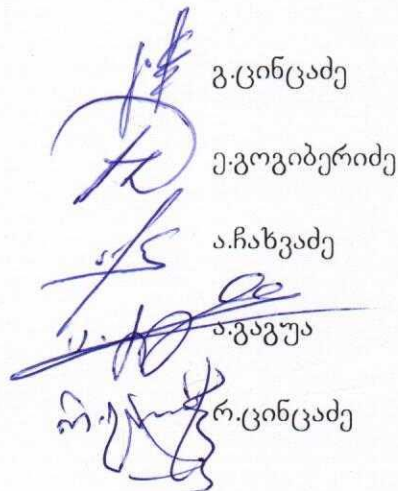 გ.ცინცაძე
ე.გოგიბერიძე
ა.ჩახვაძე
ა.გაგუა
რ.ცინცაძე